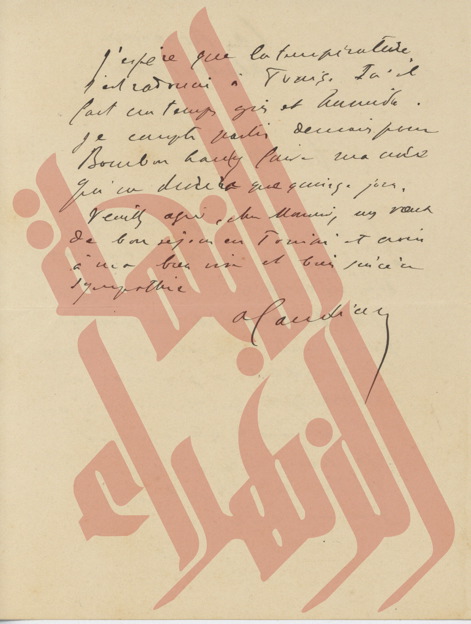 J'espère que la température
s'est radoucie à Tunis. Ici il
fait un temps gris et humide.
Je compte partir demain pour
Bourbon Lancy faire ma cure
qui ne durera que quinze jours.
Veuillez agréer, cher Monsieur, mes vœux
de bon séjour en Tunisie et croire
à ma bien vive et bien sincère
sympathie
النهضة
الزهراء